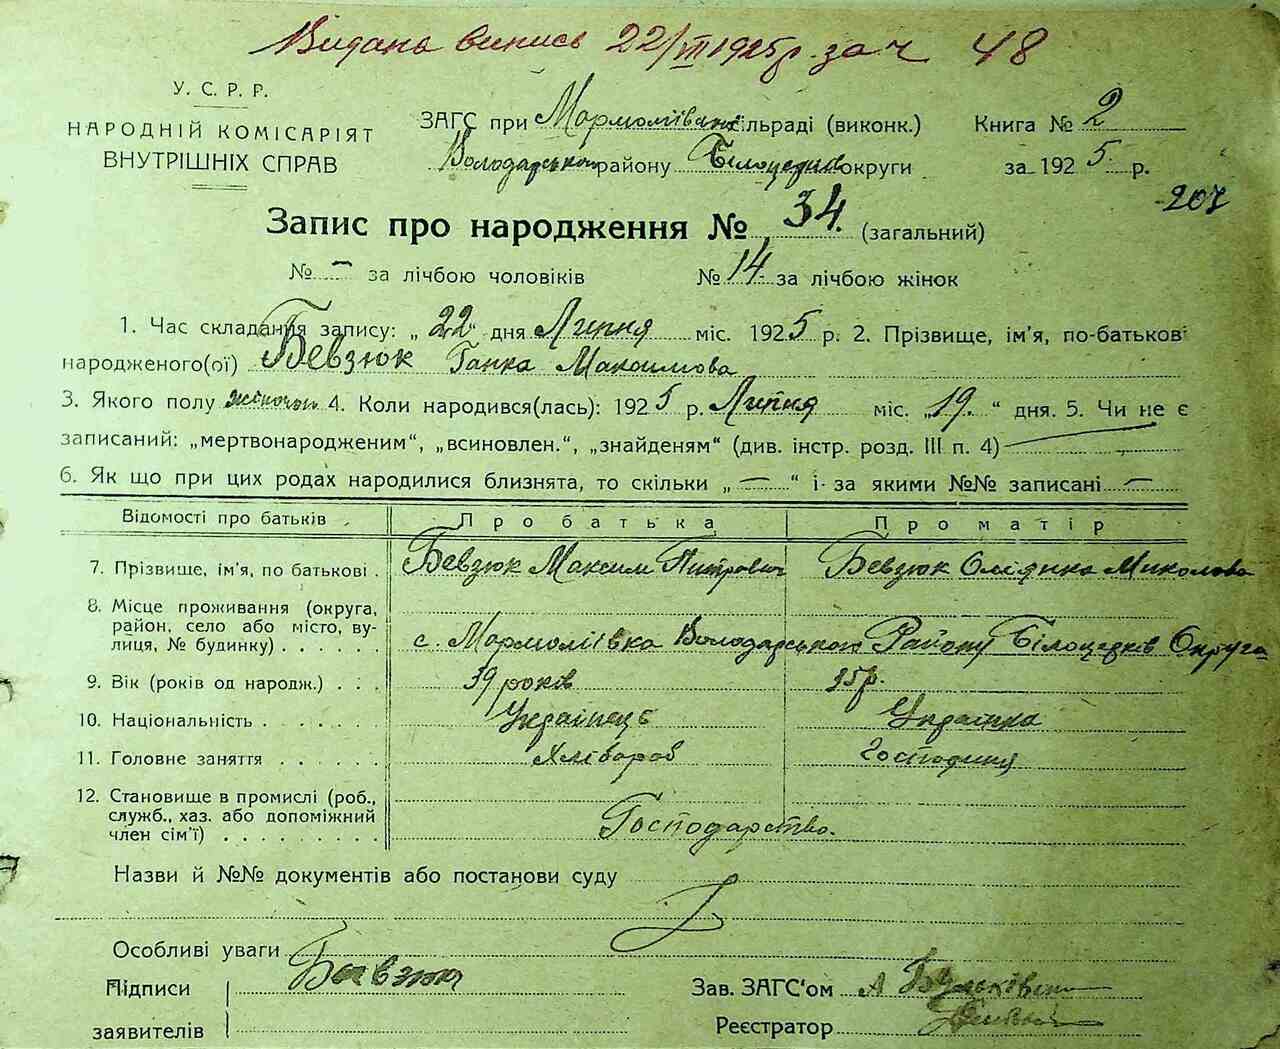 Видана випись 22/III 1925р. за ч 48
У. С. Р. Р.
НАРОДНІЙ КОМІСАРІЯТ
ВНУТРІШНІХ СПРАВ
ЗАГС при Мармоліївськ. сільраді (виконк.) Книга № 2
Володарського району Білоцерків округи за 1925 р.
207
Запис про народження № 34. (загальний)
№ – за лічбою чоловіків № 14. за лічбою жінок
1. Час складання запису: „22“ дня Липня міс. 1925 р. 2. Прізвище, ім'я, по-батькові
народженого(ої) Бевзюк Ганка Максимова
3. Якого полу жіночого 4. Коли народився(лась): 1925 р. Липня міс. „19.“ дня. 5. Чи не є
записаний: „мертвонародженим“, „всиновлен.“, „знайденям“ (див. інстр. розд. III п. 4) —
6. Як що при цих родах народилися близнята, то скільки „—“ і за якими №№ записані —
Відомості про батьків Про батька Про матір
7. Прізвище, ім'я, по батькові . Бевзюк Максим Питрович Бевзюк Олянка Миколова
8. Місце проживання (округа,
район, село або місто, вулиця, № будинку) . . . . . . с. Мармоліївка Володарського Району Білоцерків Округа
9. Вік (років од народж.) . . . 39 років 35р.
10. Національність . . . . . . Українець Українка
11. Головне заняття . . . . . . Хлібороб Господиня
12. Становище в промислі (роб.,
служб., хаз. або допоміжний
член сім'ї) . . . . . . . . Господарство.
Назви й №№ документів або постанови суду
Особливі уваги
Підписи Бевзюк Зав. ЗАГС'ом А
заявителів Реєстратор